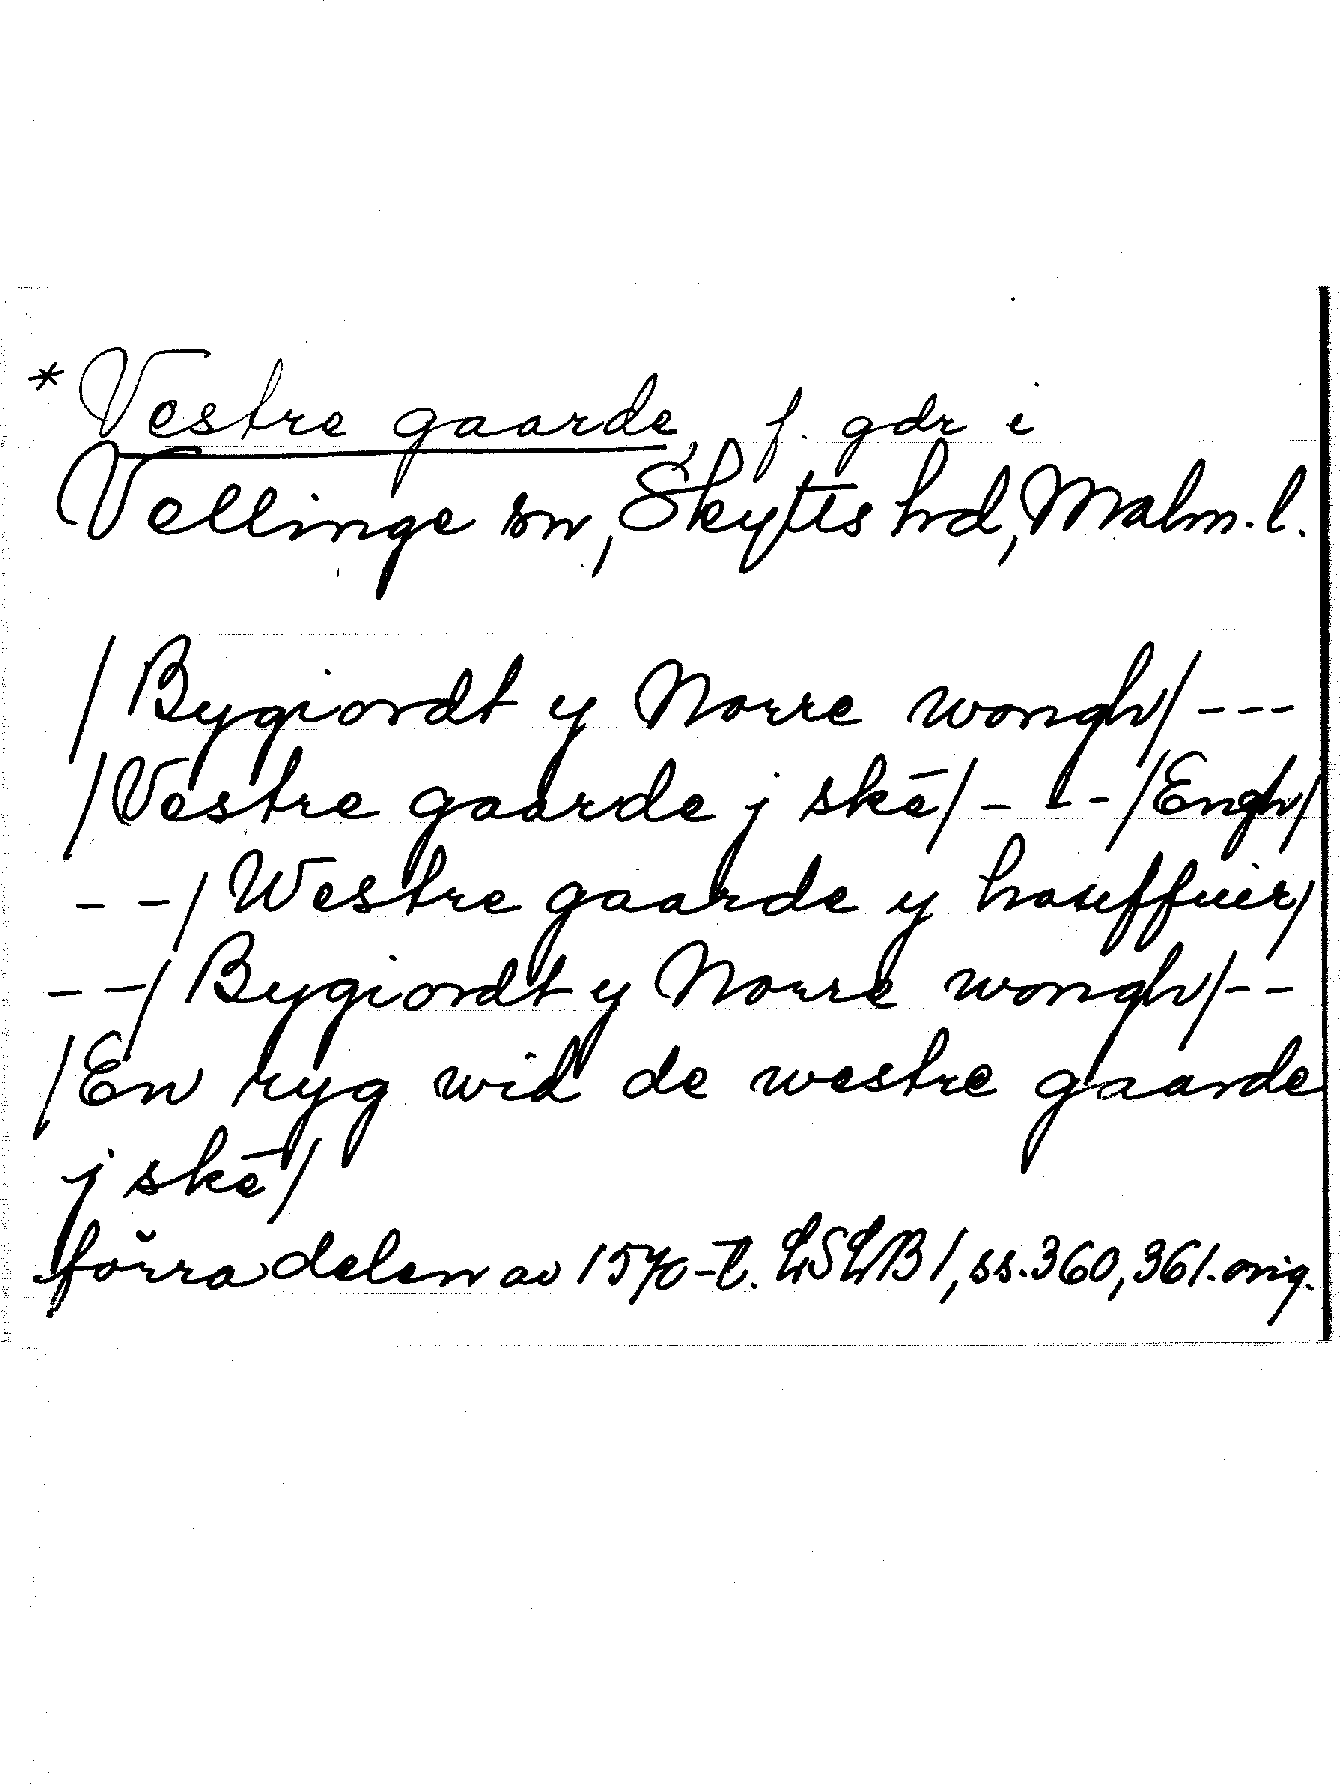 * Vestre gaarde, f. gdr i
Vellinge sn, Skytts hd, Malm. l.
/Bygiordt y Norre wongh/ ---
/Vestre gaarde j skē/ --- /Engh/
--/Westre gaarde y houffuer/
--/Bygiordt y Norre wongh/--
/En ryg wid de westre gaarde
j skē/
förra delen av 1570-t. LSLB 1, ss. 360, 361. orig.